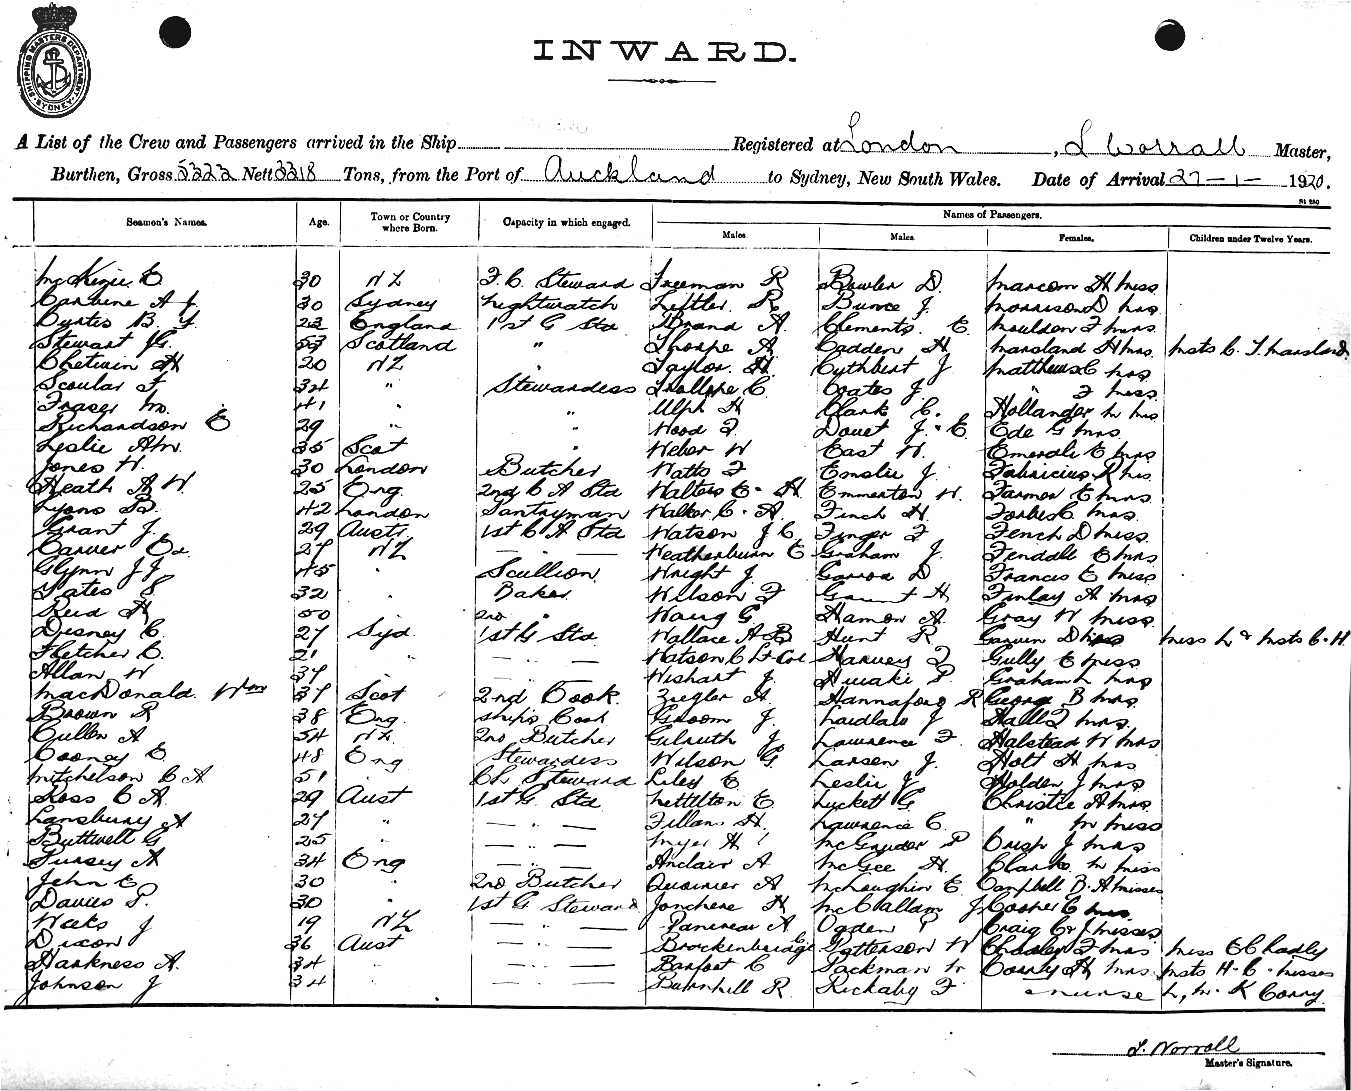 SHIPPING MASTERS DEPARTMENT SYDNEY
INWARD.
A List of the Crew and Passengers arrived in the Ship Registered at London, L Worrall Master,
Burthen, Gross 5222 Nett 3218 Tons, from the Port of Auckland to Sydney, New South Wales. Date of Arrival 27-1-1920.
Names of Passengers.
Seamen's Names. Age. Town or Country where Born. Capacity in which engaged. Males. Males. Females. Children under Twelve Years.
McKenzie E 30 NZ F.C. Steward Freeman R Bowler D. Marcon H Miss
Carbine A J 30 Sydney Nightwatch Leffler R Bunce J. Morrison D Mrs
B. 23 England 1st G Std Brand A. Clements. E. Moulden F Mrs
Stewart J.G. 53 Scotland " Thorpe A Cadden H Marsland H Mrs. Mstr C. T. Marsland
Chetwin H 20 NZ " Taylor H. Cuthbert J Matthews C Mrs
Scoular F 34 " Stewardess Trollope C Coates J " F Miss
Fraser M. 41 " " Ulph H Clark C. Hollander L Mrs
Richardson E 29 " " Wood F Douet J. E. Ede G Mrs
Leslie 35 Scot " Weber W East W. Emerali E Mrs
Jones W. 30 London Butcher Watts F Emslie J Fabricius R Mrs
Heath A W. 25 Eng. 2nd C A Std Walters E. H Emmerton W. Farmer E Mrs
Lyons B. 42 London Pantryman Walker C. A. Finch H. Forbes C Mrs
Grant J. 29 Austr 1st C A Std Watson J C. Finger F Fench D Miss
Carver 27 NZ " Weatherburn E Graham J. Fendall E Mrs
Glynn J J 45 " Scullion Waight J. D Francis E Miss
Yates S 32 " Baker Wilson F H Finlay A Mrs
Reid H 50 2nd " Waug G Hamon A. Gray W Miss
Disney C. 27 Syd. 1st G Std Wallace A B Hunt R Garvin D Mrs Miss L & Mstr C. H
Fletcher C. 21 " Watson C Lt Col Harvey F Gully E Miss
Allan W 37 " Wishart J. P Graham L Mrs
MacDonald Wm 37 Scot 2nd Cook Ziegler A. Hannaford R George B Mrs
Brown R 38 Eng. Ships Cook Groom J. Laidlaw J Hall F Mrs
Cullen A 54 NZ 2nd Butcher Gilruth J Lawrence F. Halstead W Mrs
Cooney E 48 Eng Stewardess Wilson G. Larsen J. Holt H Mrs
Mitchelson C A 51 Ch Steward Liley E Leslie J Holden J Mrs
Ross C A. 29 Aust 1st G. Std Nettleton E. Luckett G Christie A Mrs
Lansbury A 27 " " Fillan H. Lawrence C. " M Miss
Buttwell G 25 " " Myer H McGruder P Crisp J Mrs
Gursey A 34 Eng " Anclair A McGee H. Clark L Miss
John E 30 " 2nd Butcher A McLoughlin E. Campbell B. A Misses
Davies P. 30 " 1st G Steward Jonchere H McCallam J Cooper C Miss
Weeks J 19 NZ " A Ogden P Craig C & J Misses
Dixon J 36 Aust " Brockenbridge Patterson W F Mrs Miss E
Harkness A. 34 " " Barfoot C Packman W Corry H Mrs Mstr H. C. Misses
Johnson J 34 " " Burnhill R. Rickaby F & nurse L, M. K Corry
L. Worrall
Master's Signature.